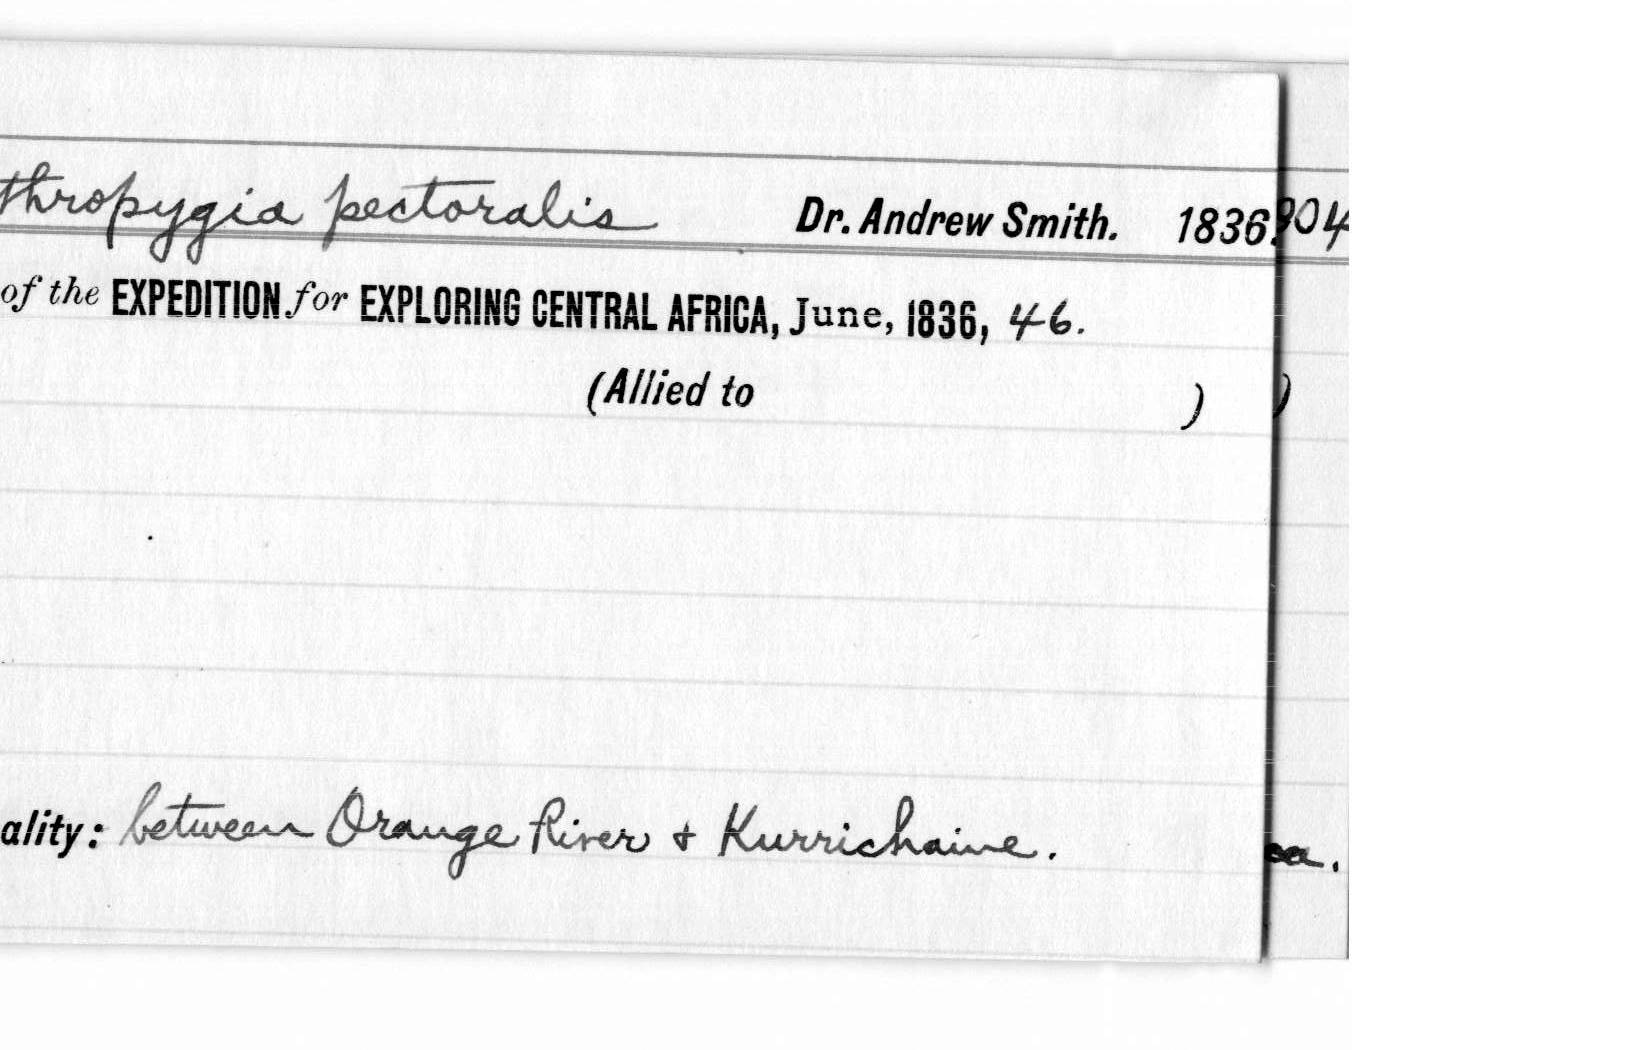 thropygia pectoralis Dr. Andrew Smith. 1836. 904
of the EXPEDITION for EXPLORING CENTRAL AFRICA, June, 1836, 46.
(Allied to ) )
ality: between Orange River + Kurrichaine. ca.